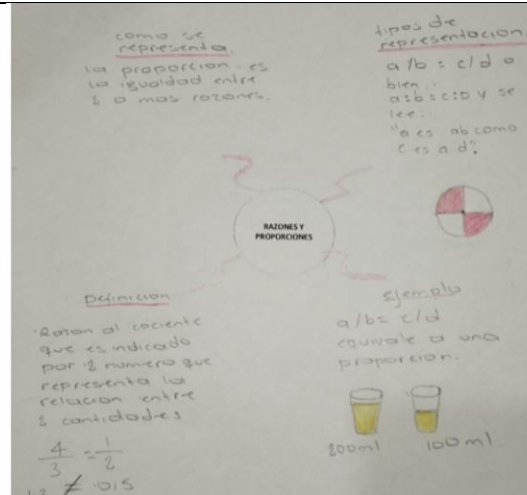 como se
representa
la proporcion es
la igualdad entre
2 o mas razones.
tipos de
representacion.
a/b = c/d o
bien..
a:b = c:D y se
lee.
"a es ab como
c es a d".
RAZONES Y
PROPORCIONES
Definicion
Razon al cociente
que es indicado
por 2 numero que
representa la
relacion entre
2 cantidades
4/3 = 1/2
≠ 0.5
ejemplo
a/b = c/d
equivale a una
proporcion.
200ml 100ml